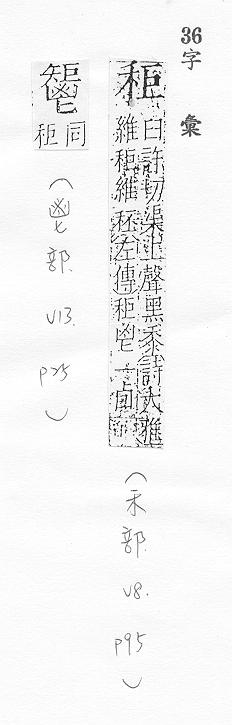 36字彙
秬
臼許切渠上聲黑黍詩大雅
維秬維秠左傳秬鬯一卣
(禾部 v8. p95)
𩰤
同
秬
(鬯部 v13. p25)